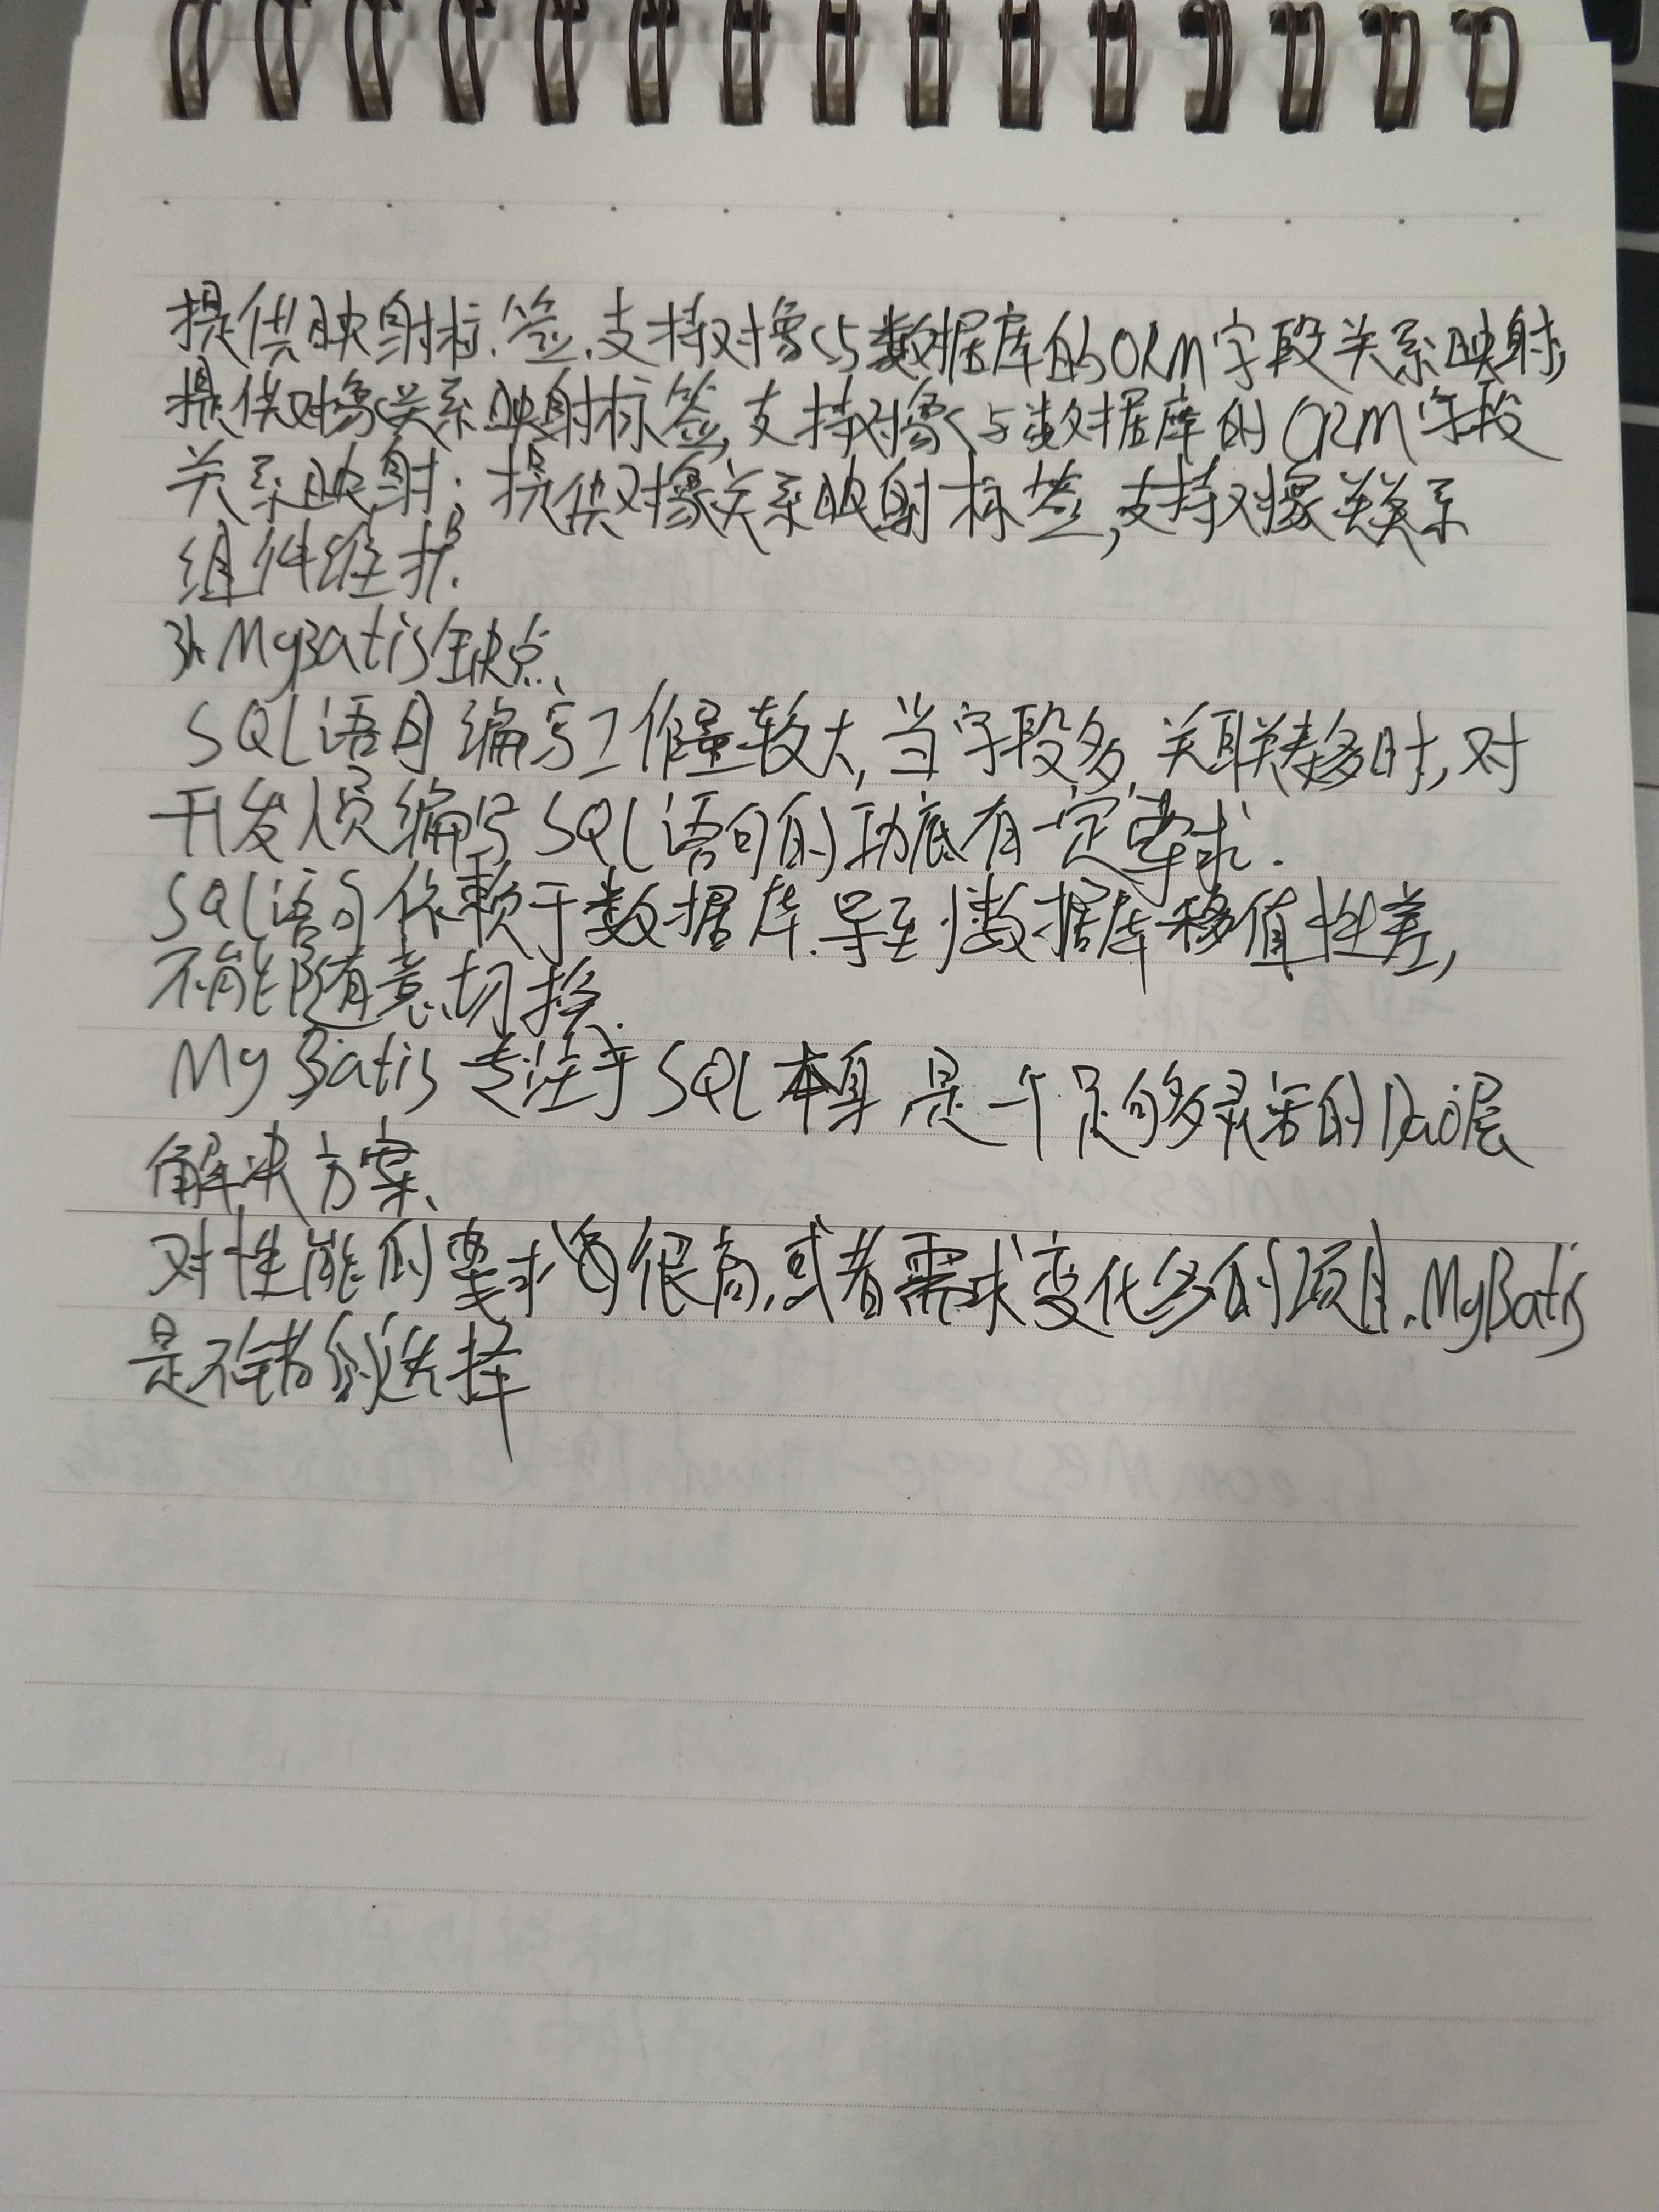 提供映射标签,支持对像与数据库的ORM字段关系映射;
提供对像关系映射标签,支持对像与数据库的ORM字段
关系映射;提供对像关系映射标签,支持对像关系
组件维护.
3、MyBatis缺点、
SQL语句编写工作量较大,当字段多,关联表多时,对
开发人员编写SQL语句的功底有一定要求.
SQL语句依赖于数据库.导致数据库移值性差,
不能随意切换.
MyBatis专注于SQL本身,是一个足够灵活的Dao层
解决方案、
对性能的要求很高,或者需求变化多的项目.MyBatis
是不错的选择